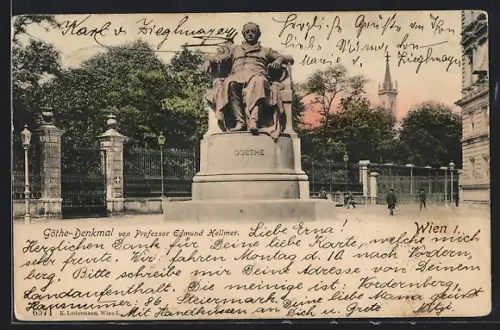 Karl v. Zieglmayer
Herzliche Grüße an Ihre
liebe Mama und Sie
Marie v. Zieglmayer
GOETHE
Göthe-Denkmal von Professor Edmund Hellmer.
Wien I.
Liebe Erna!
Herzlichen Dank für Deine liebe Karte, welche mich
sehr freute. Wir fahren Montag d. 10 nach Vordern,
berg. Bitte schreibe mir Deine Adresse von Deinem
Landaufenthalt. Die meinige ist: Vordernberg,
Hausnummer: 86, Steiermark. Deine liebe Mama
Mit Handküssen an Dich u. Grete
6571 K. Ledermann, Wien I.